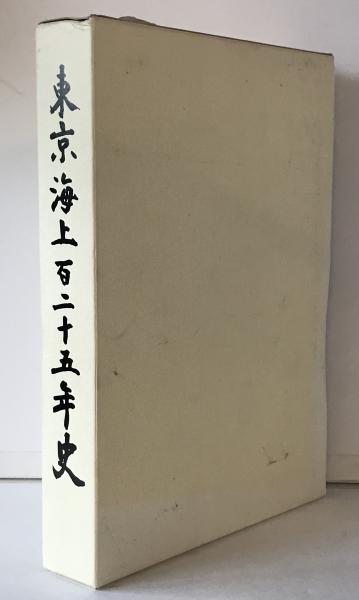 東京海上百二十五年史